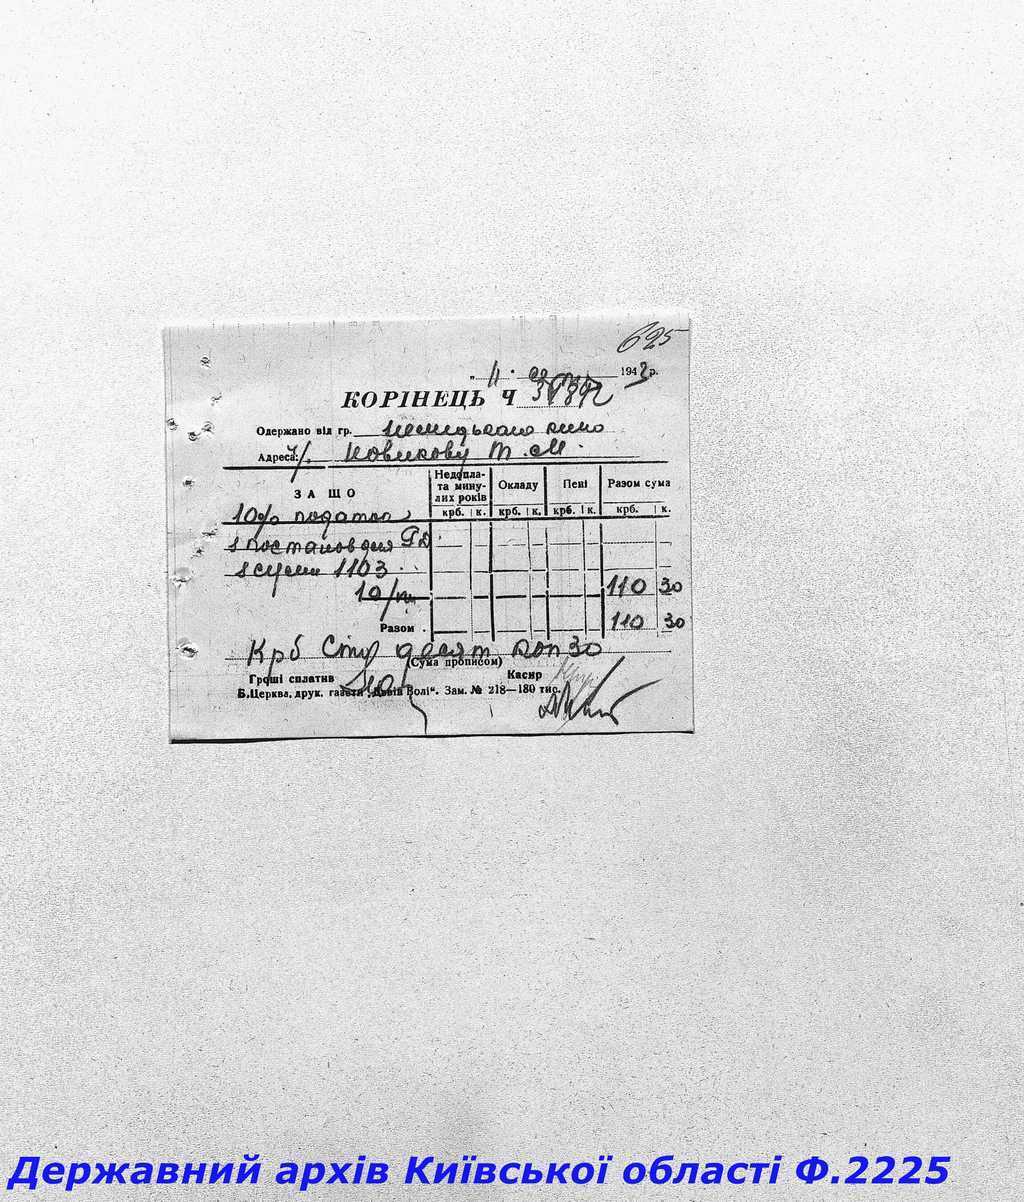 625
" 11 " 1943 р.
КОРІНЕЦЬ Ч
Одержано від гр. кино
Адреса: ч/. Новикову Т. М.
ЗА ЩО Недопла-та мину-лих років Окладу Пені Разом сума
крб. к. крб. к. крб. к. крб. к.
10% податок
з постанов для
з суми 1103
10/ 110 30
Разом 110 30
Крб Сто десят коп 30
(Сума прописом)
Гроші сплатив Касир
Б.Церква, друк. газети „Дзвін Волі“. Зам. № 218—180 тис.
Державний архів Київської області Ф.2225